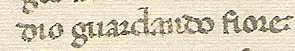 dio guardando fiore: